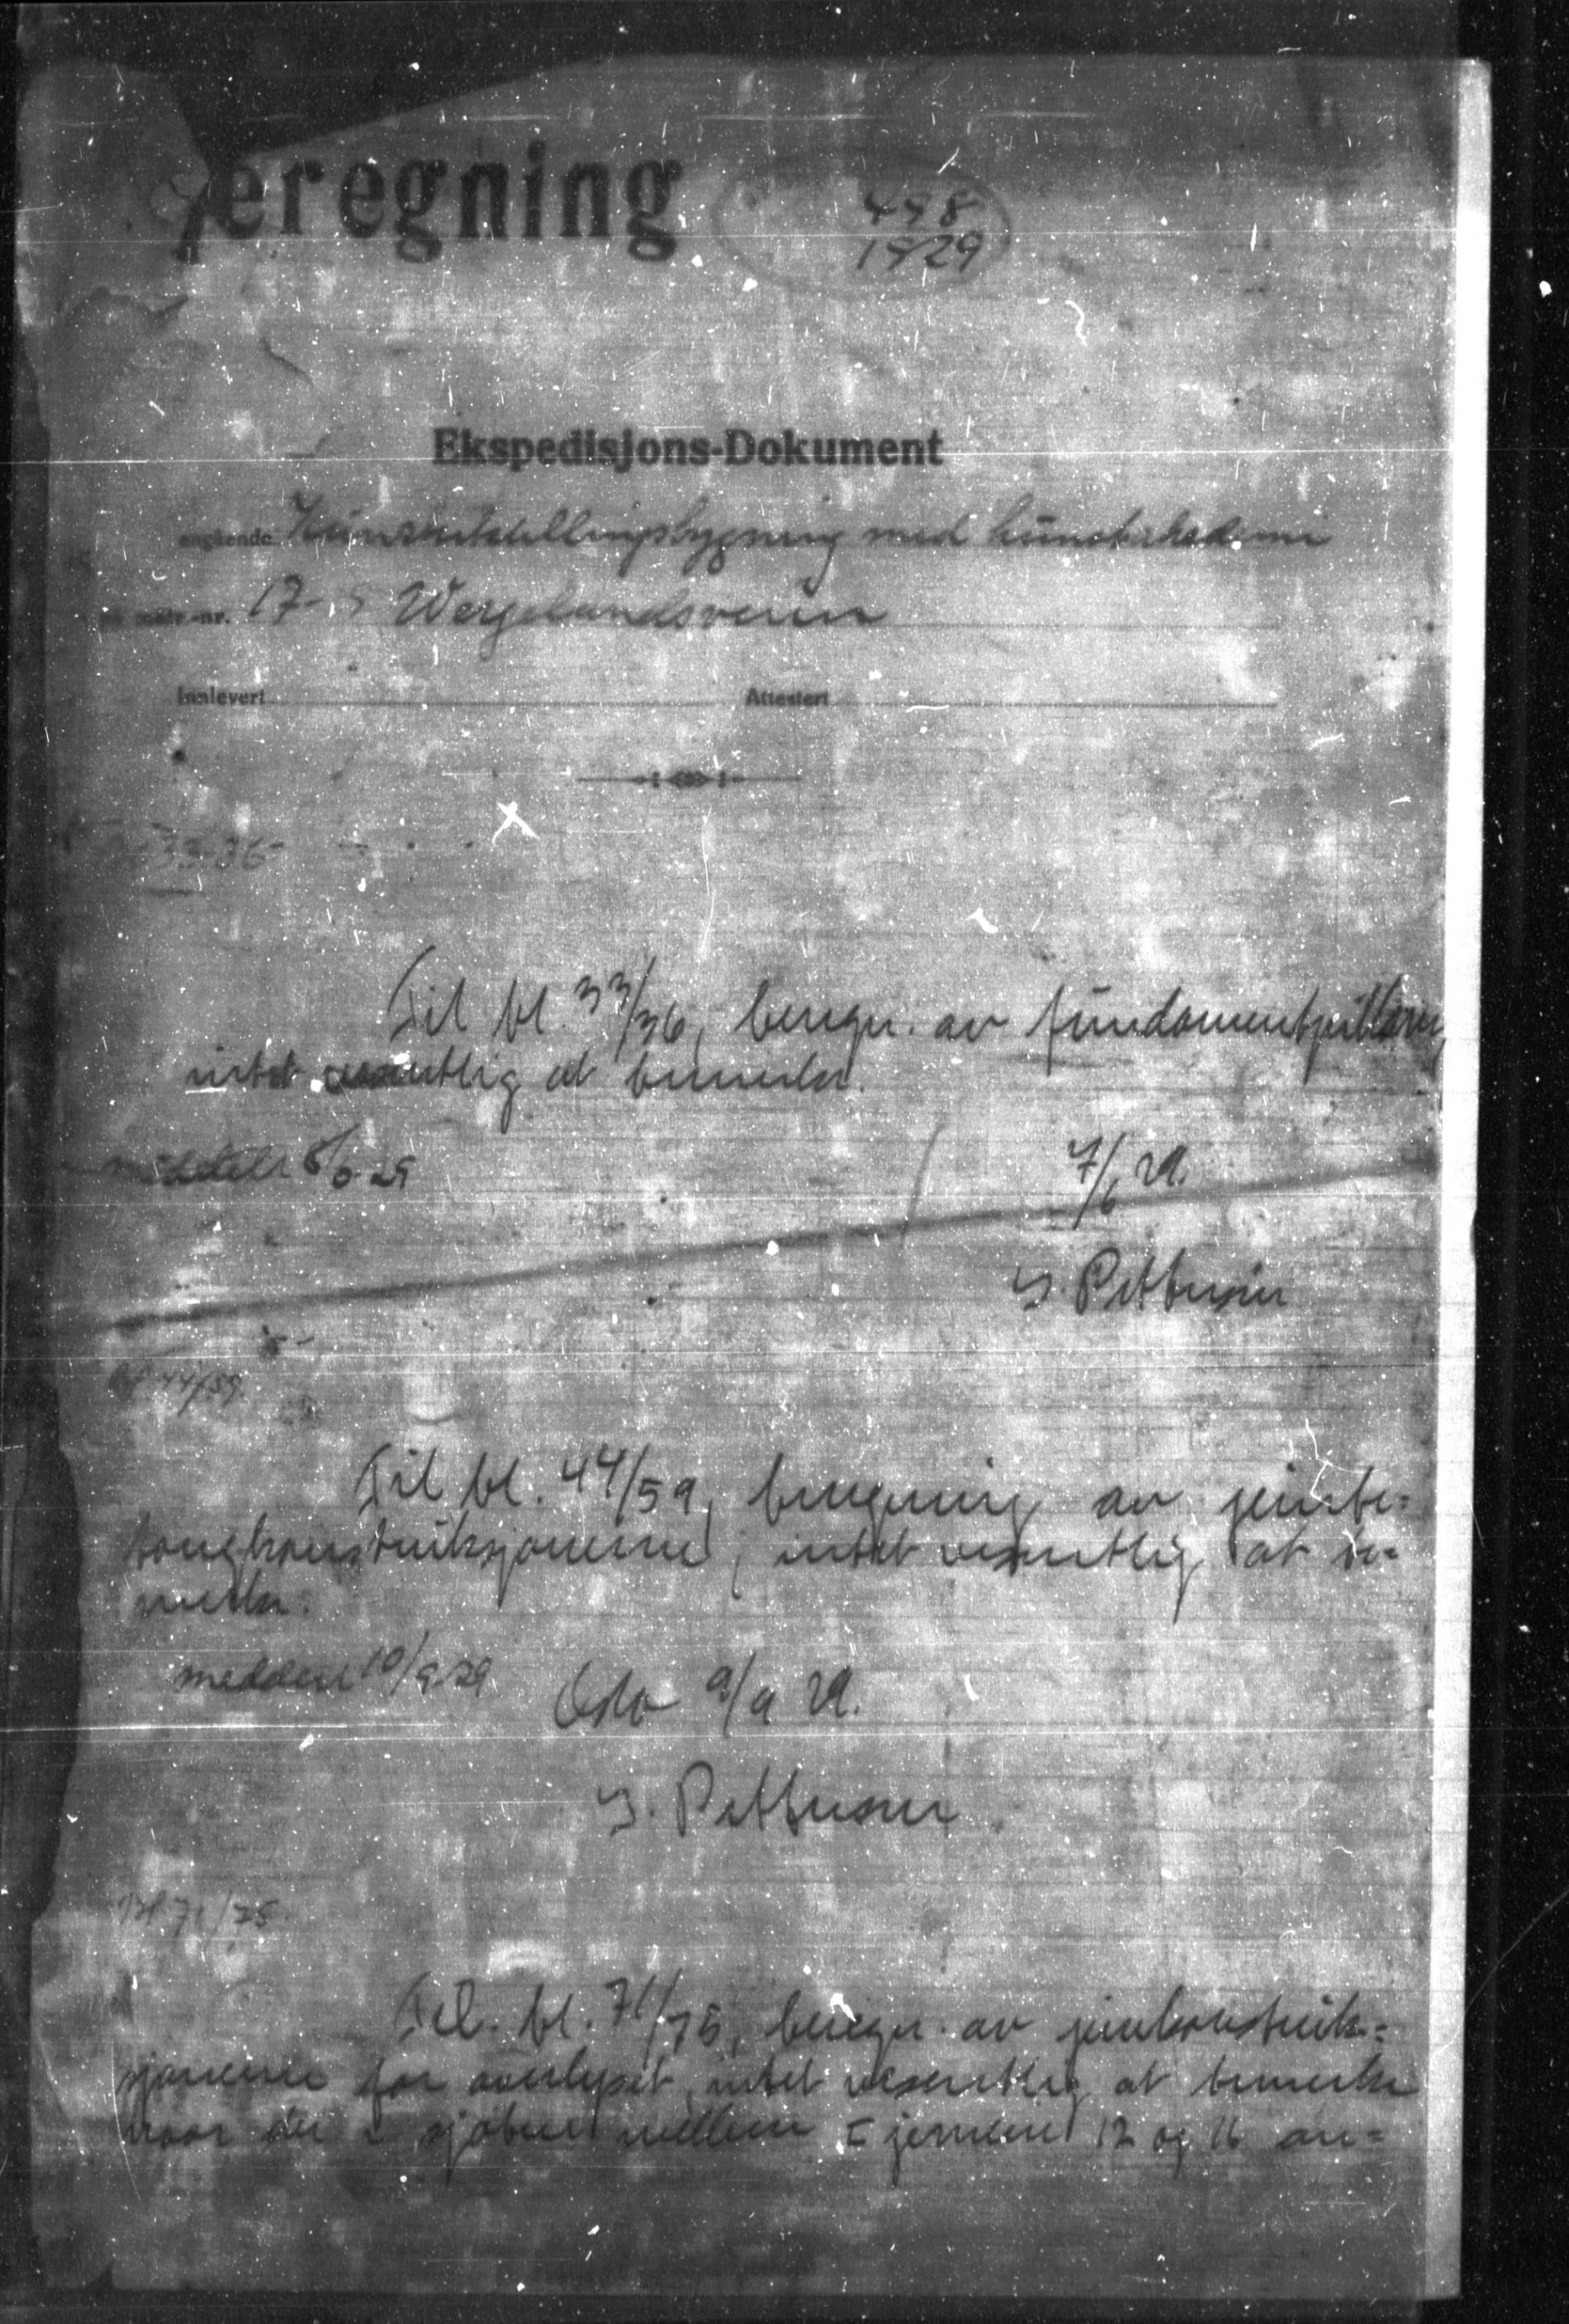 eregning
498
1929
Ekspedisjons-Dokument
angående Kunstutstillingsbygning med kunstakademi
matr.-nr. 17- Wergelandsveien
Innlevert Attestert
33-36
Til bl. 33/36, beregn. av fundamentpillarer,
intet væsentlig at bemerke.
7/6 29.
I. Pettersen
Bl 44/59.
Til bl. 44/59, beregning av jernbe=
tongkonstruksjonerne, intet vesentlig at be=
merke.
meddelt 10/9-29 Oslo 9/9 29.
I. Pettersen
Bl. 71/75.
Til bl. 71/75, beregn. av jernkonstruk=
sjonerne for overlyset, intet vesentlig at bemerke
naar der mellem jernene 12 og 16 an=